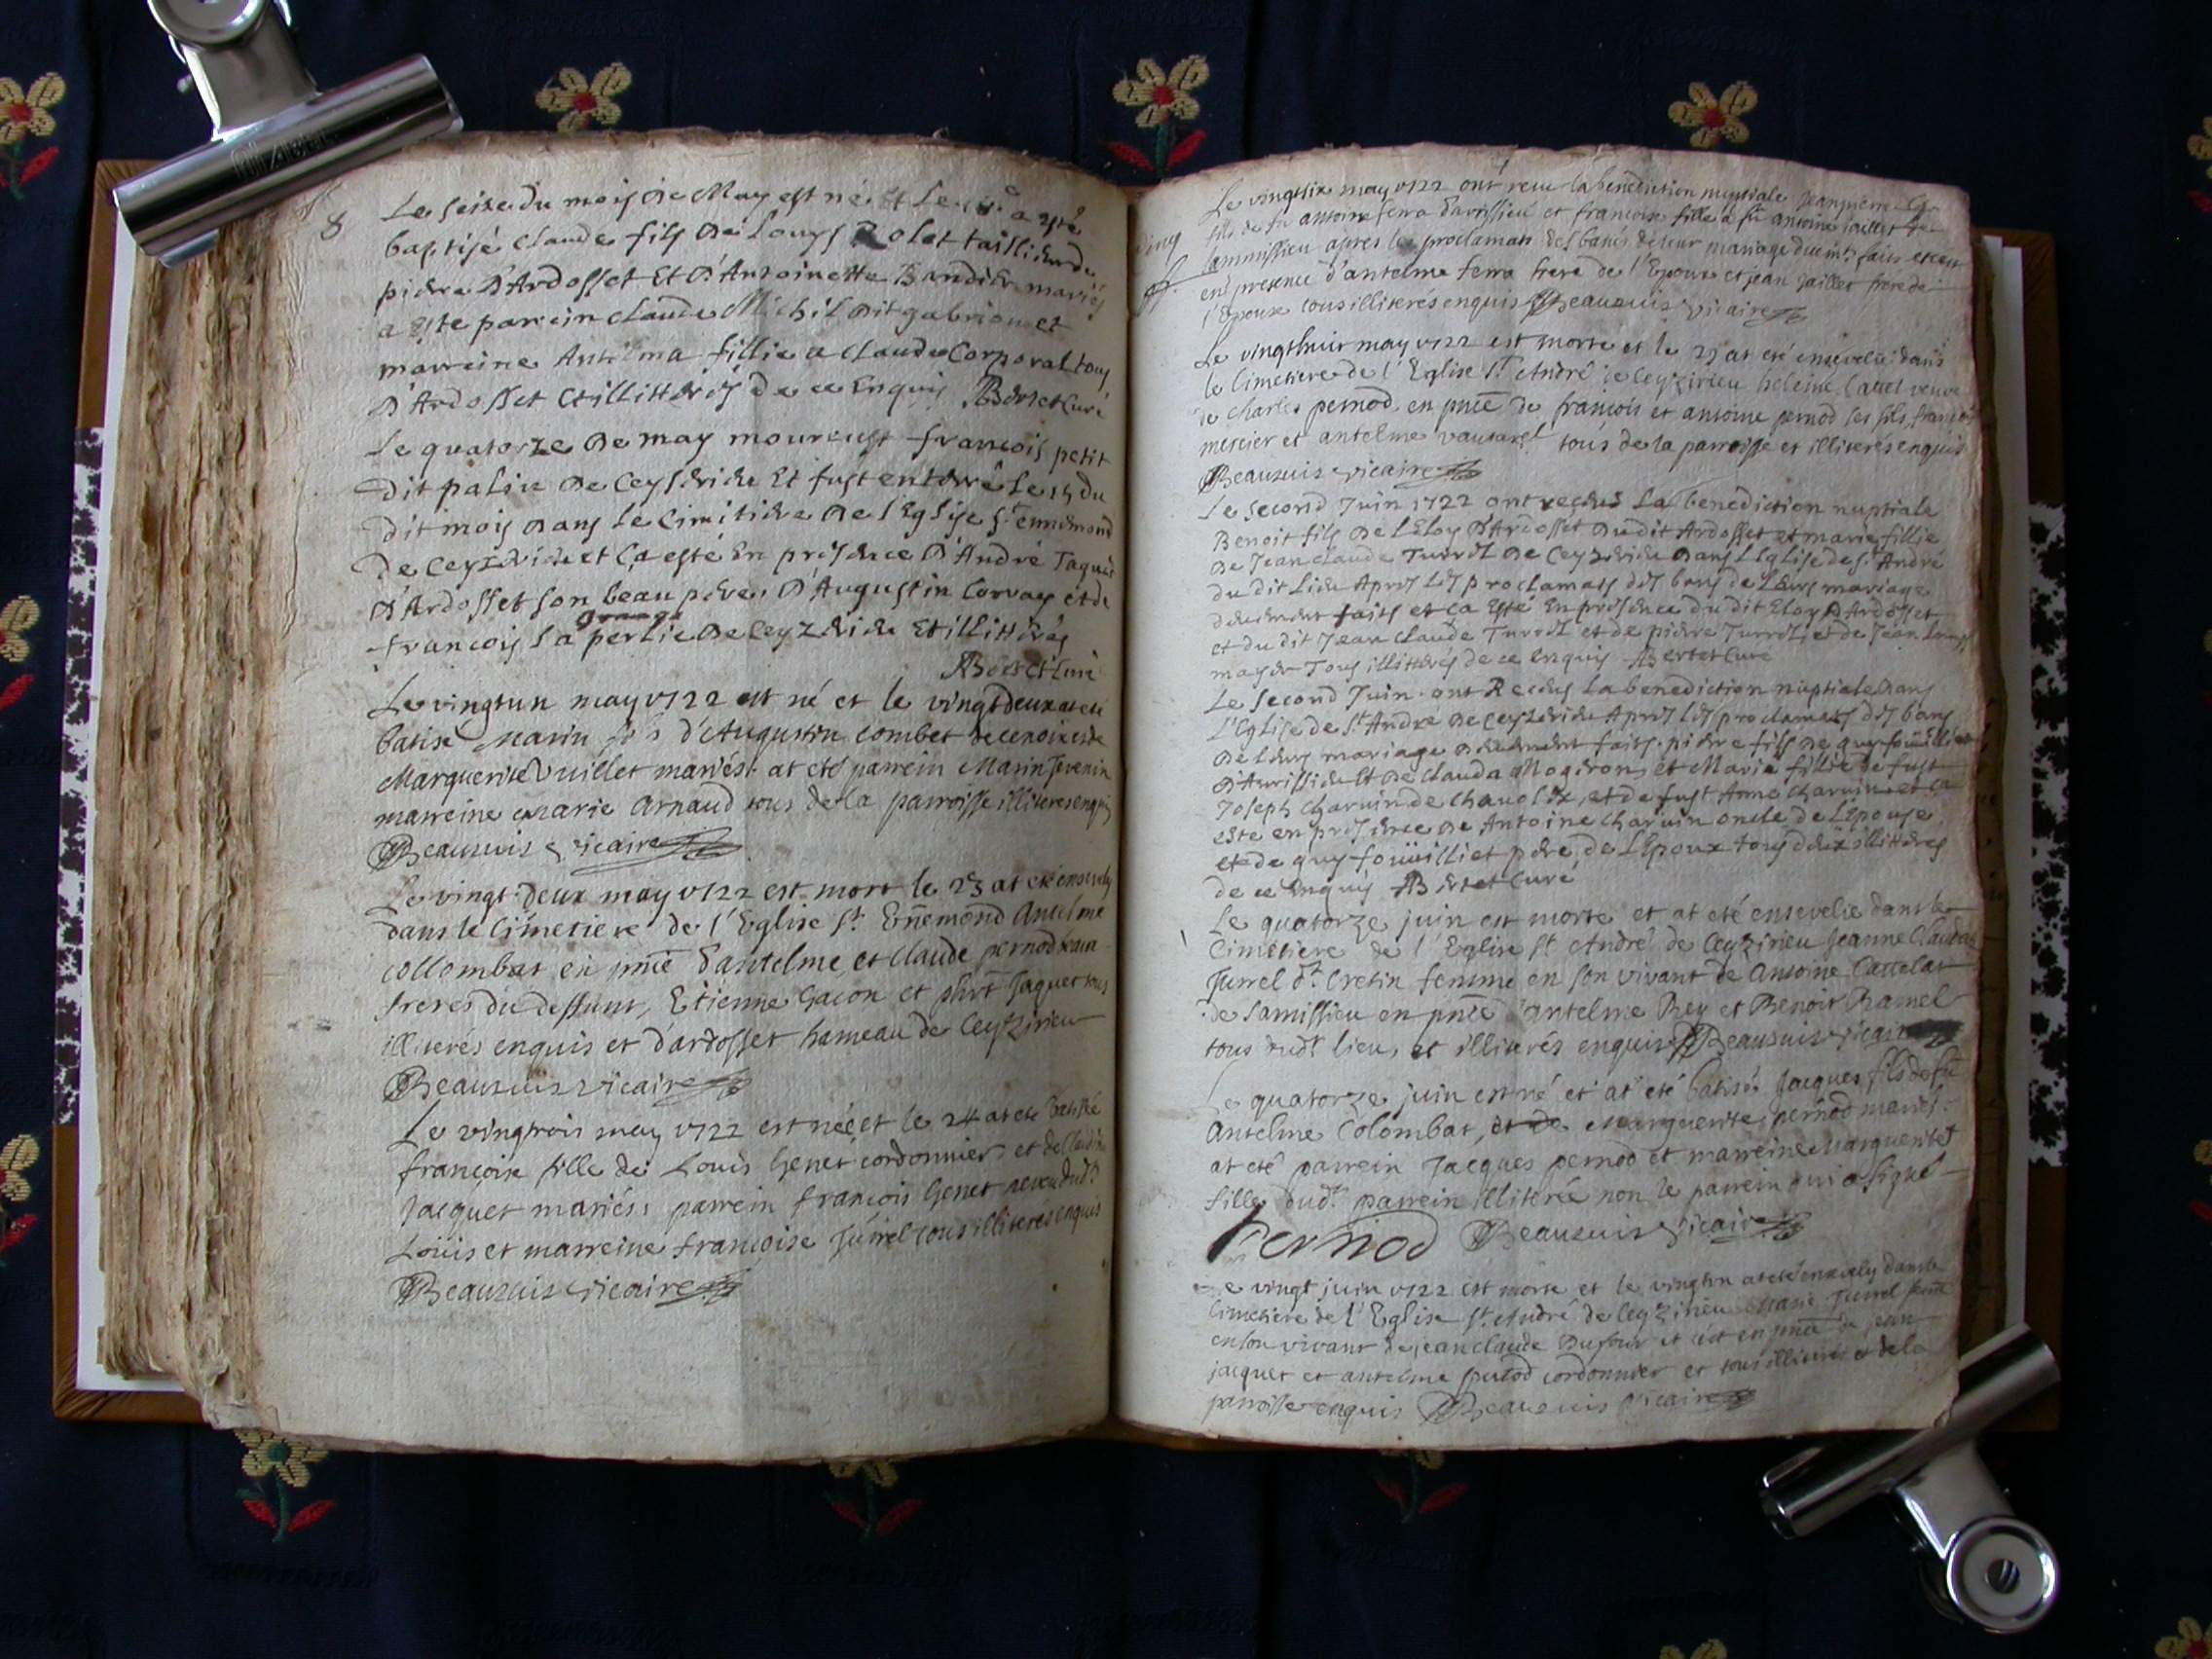 8
Le seize du mois de May est né et le a esté
baptisé Claude fils de Louys Rolet taillieur de
pierre d'Ardosset et d'Antoinette mariés
a esté parrein Claude Michil dit gabrion et
marreine Antelma fillie a Claude Corporal tous
d'Ardosset et illitterés de ce Enquis Bertet Curé
Le quatorze de may mourust francois petit
dit palin de Ceyserieu Et fust enterré le 15 du
dit mois dans le Cimitiere de l'Eglise St ennemond
de Ceyzerieu et ça esté En presence d'André Jaquet
d'Ardosset son beau pere, d'Augustin Corvay et de
francois la perlie de Ceyzerieu Et illitterés
Bertet Curé
Le vingtun may v722 est né et le vingtdeux at eté
batisé Marin fils d'Augustin Combet de et de
Marguerite Vuillet mariés. at eté parrein Marin
marreine Marie Arnaud tous de la parroisse illiterés enquis
Beauzuis vicaire
Le vingt-deux may v722 est mort le 23 at eté ensevely
dans le Cimetiere de l'Eglise St. Ennemond Antelme
collombat en pnce d'antelme et Claude pernod beau
freres du deffunt, Etienne Gacon et Jaquet tous
illiterés enquis et d'ardosset hameau de Ceyzirieu
Beauzuis vicaire
Le vingtrois may v722 est née et le 24 at eté batisée
françoise fille de Louis Genet cordonnier et de
Jacquet mariés, parrein François Genet neveu dudt
Louis et marreine Françoise Jurrel tous illiterés enquis
Beauzuis vicaire
Le vingtsix may v722 ont receu la benediction nuptiale Jeanpierre
fils de fu antoine ferra d'avrissieu et francoise fille a fu antoine Jaillet de
sammissieu apres les proclamaõns des bancs de leur mariage duemt faits et ceu
en presence d'antelme ferra frere de l'Epoux et jean Jaillet frere de
l'Epouse tous illiterés enquis Beauzuis vicaire
Le vingthuit may v722 est morte et le 29 at eté ensevelie dans
le Cimetiere de l'Eglise St André de Ceyzirieu helene veuve
de Charles pernod en pnce de françois et antoine pernod ses fils, françois
mercier et antelme tous de la parroisse et illiterés enquis
Beauzuis vicaire
Le second Juin 1722 ont recus La benediction nuptiale
Benoit fils de l'Eloy d'Ardosset du dit Ardosset et marie fillie
de Jean claude Turrel de Ceyzerieu dans L'Eglise de St André
du dit Lieu Apres les proclamaõns des bans de Leurs mariage
deuement faits et ça Esté En presence du dit Eloy d'Ardosset
et du dit Jean Claude Turrel et de pierre Turrel et de Jean
mayer Tous illitterés de ce enquis Bertet Curé
Le second Juin ont Recus la benediction nuptiale dans
L'Eglise de St André de Ceyzerieu Apres les proclamaõns des bans
de Leurs mariage deuement faits. pierre fils de guy foüilliet
d'Avrissieu Et de Clauda Mogiron, et Marie fillie de fust
Joseph Charvin de Chavolix, et de fust Anne Charvin et ça
esté en presence de Antoine Charvin oncle de L'Epouse
et de guy foüilliet pere, de L'Epoux tous deux illitterés
de ce Enquis Bertet Curé
Le quatorze juin est morte et at eté ensevelie dans le
Cimetiere de l'Eglise St André de Ceyzirieu Jeanne Clauda
Jurrel dt Cretin femme en son vivant de Antoine Cattelat
de Samissieu en pnce d'antelme Rey et Benoit Ramel
tous dudt lieu, et illiterés enquis Beauzuis vicaire
Le quatorze juin est né et at eté batisé Jacques fils de fu
Antelme Colombat, et de Marguerite pernod mariés.
at eté parrein Jacques pernod et marreine Marguerite
fille dudt parrein illiterée non le parrein qui a signé
Pernod Beauzuis vicaire
Le vingt juin v722 est morte et le vingtun at eté ensevely dans le
Cimetiere de l'Eglise St. André de Ceyzirieu Marie Jurrel feme
en son vivant de jean claude Dufour et c'est en pnce de jean
jacquet et antelme cordonnier et tous illiterés et de la
parroisse enquis Beauzuis vicaire